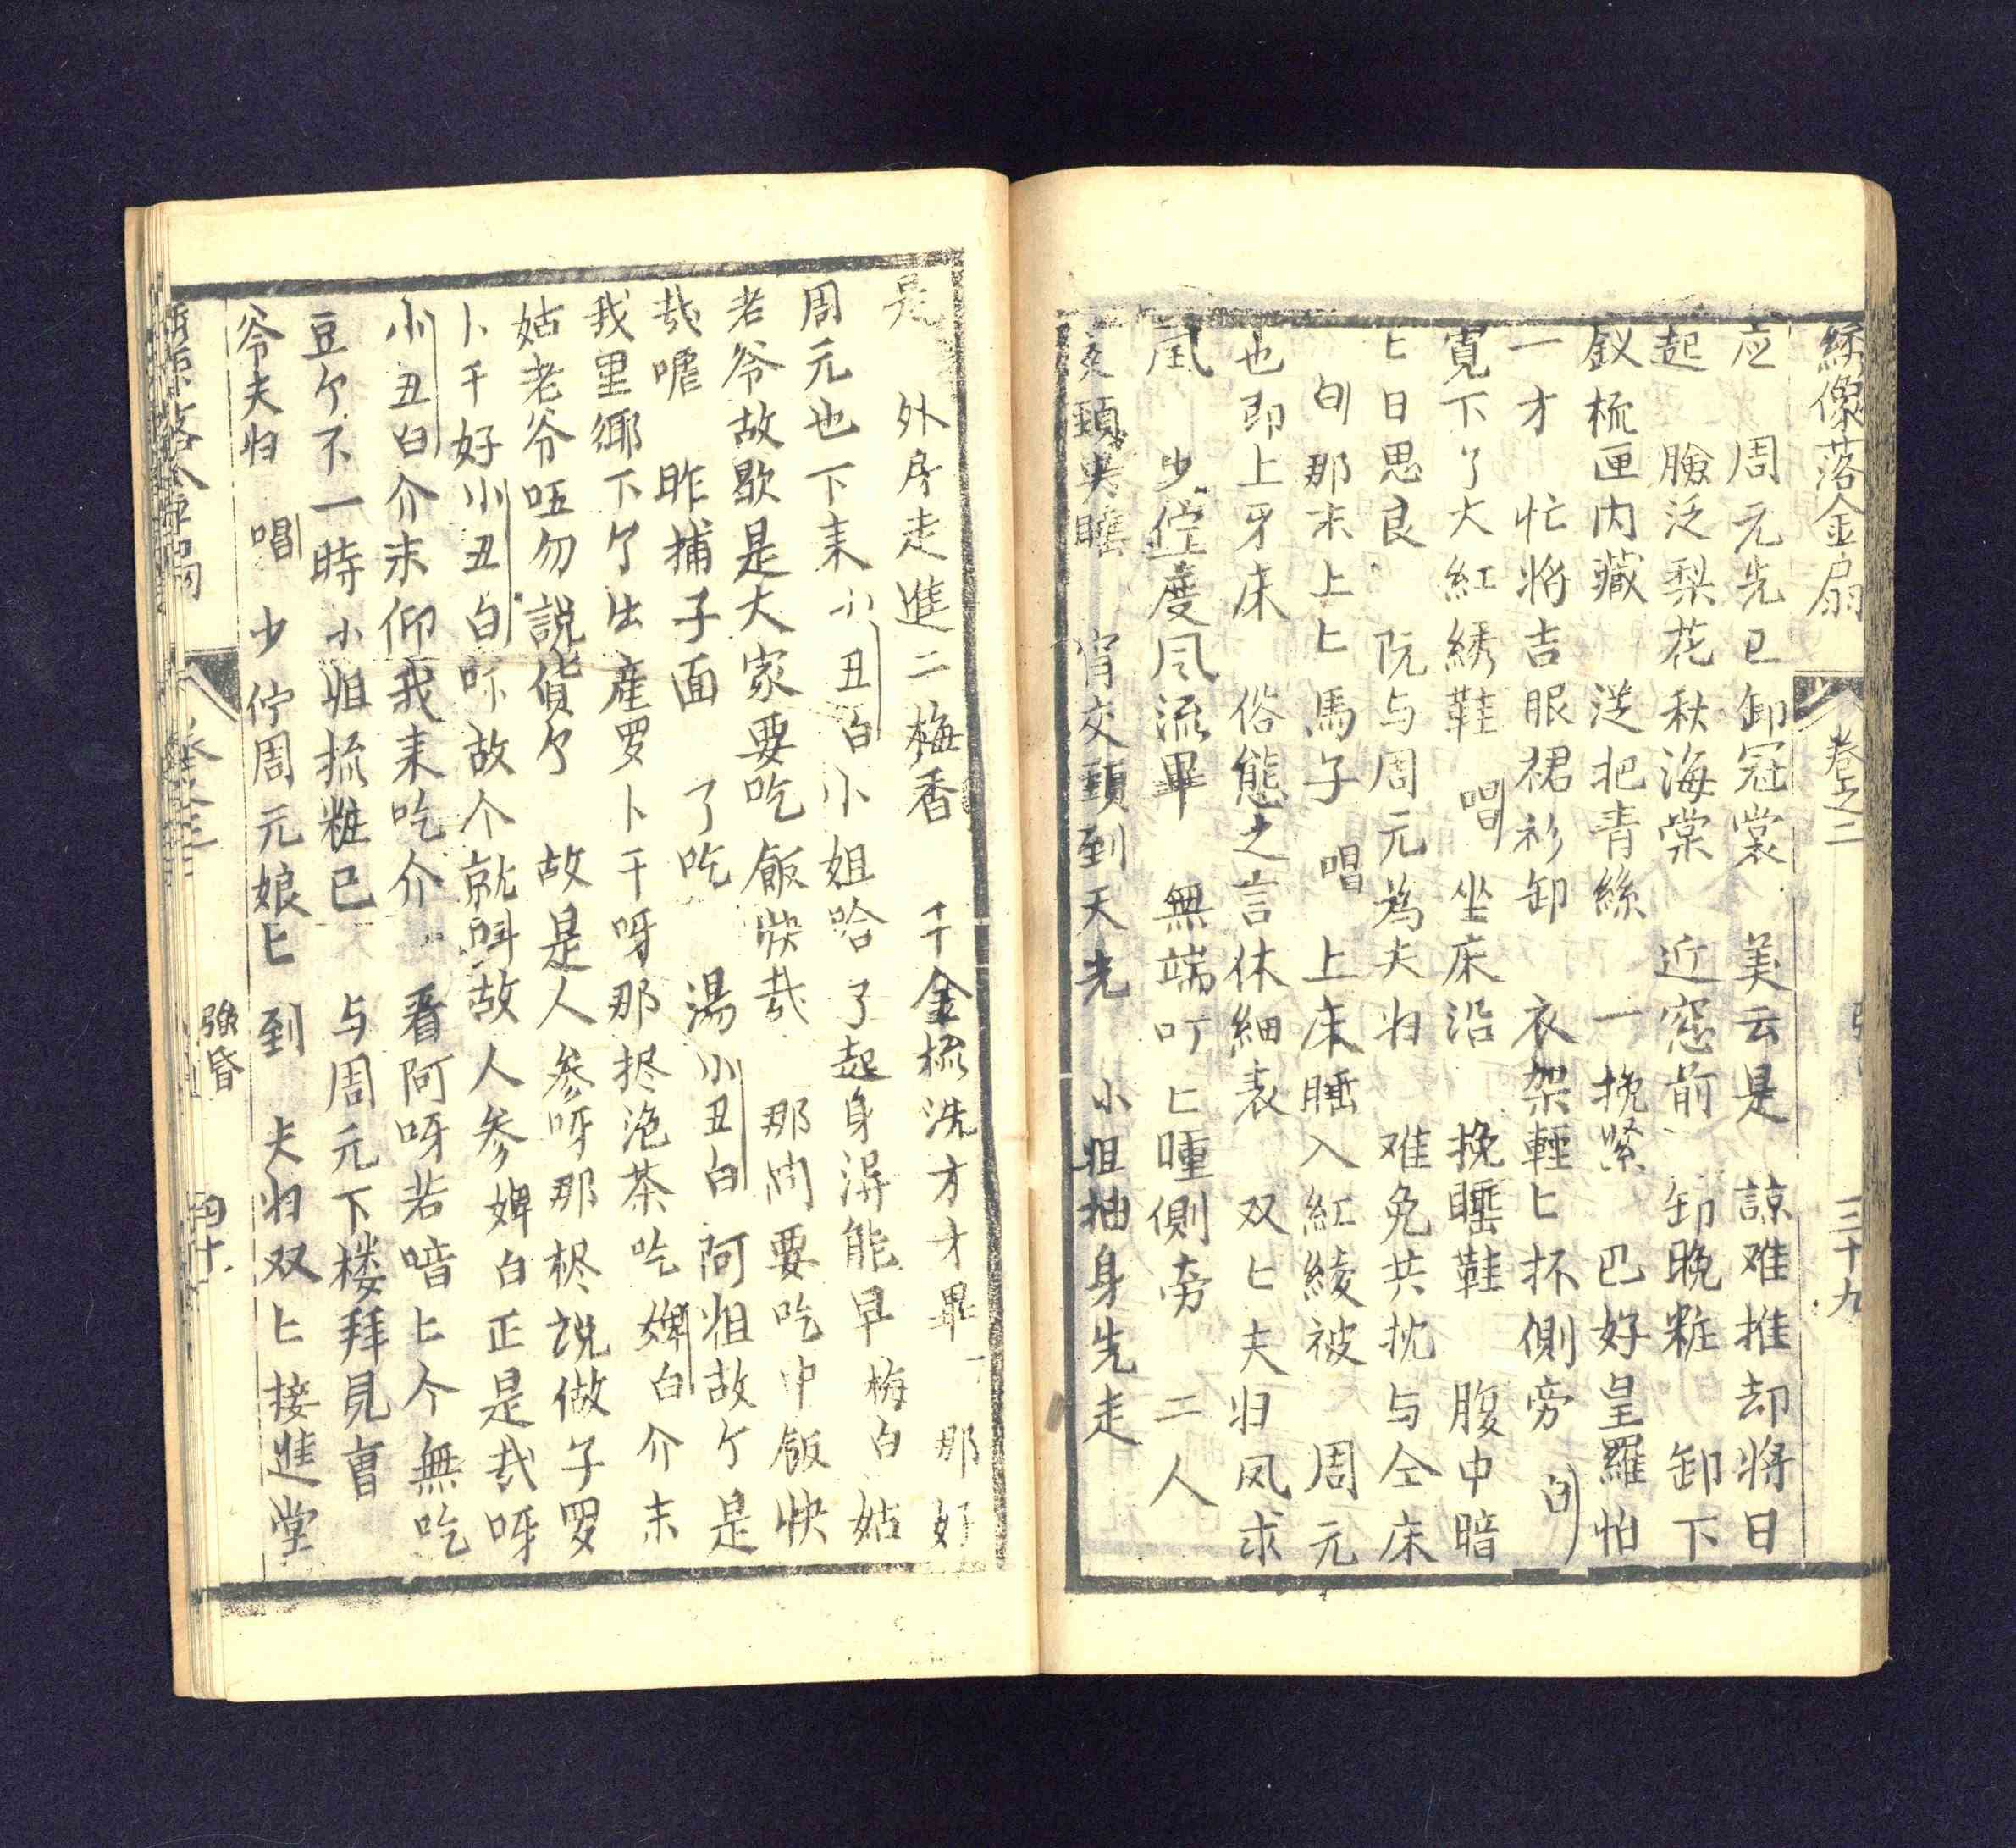 綉像落金扇 卷之二 三十九
应 周元先已卸冠裳 美云是 諒难推却將日
起 臉泛梨花秋海棠 近窓前 卸晚粧 卸下
釵梳匣内藏 送把青絲 一挽緊 巴好皇羅怕
一才 忙將吉服裙衫卸 衣架輕匕抔側旁 白
寬下了大紅綉鞋 唱 坐床沿 挽睡鞋 腹中暗
匕日思良 阮与周元為夫归 难免共枕与仝床
白那末上匕馬子 唱 上床睡入紅綾被 周元
也即上牙床 俗態之言休細表 双匕夫归凤求
凰 少停度風流畢 無端叮匕睡側旁 二人
交頸 睡 宵交頸到天光 小姐抽身先走
是 外房走進二梅香 千金梳洗方才畢 那好
周元也下来 小丑白 小姐哈了起身 能早 梅白 姑
老爷故歇是大家要吃飯快哉 那问要吃中飯快
哉 昨捕子面 了吃 湯 小丑白 阿姐故个是
我里鄉下个出產罗卜干呀那 泡茶吃 婢白 介末
姑老爷 勿說貨个 故是人参呀那 說做子罗
卜干好 小丑白 故个就叫故人参 婢白 正是哉呀
小丑白 介末仰我来吃介 看阿呀若喑匕个無吃
豆个不一時小姐梳粧已 与周元下楼拜見曺
爷夫归 唱 少停周元娘匕到 夫归双匕接進堂
強昏 四十